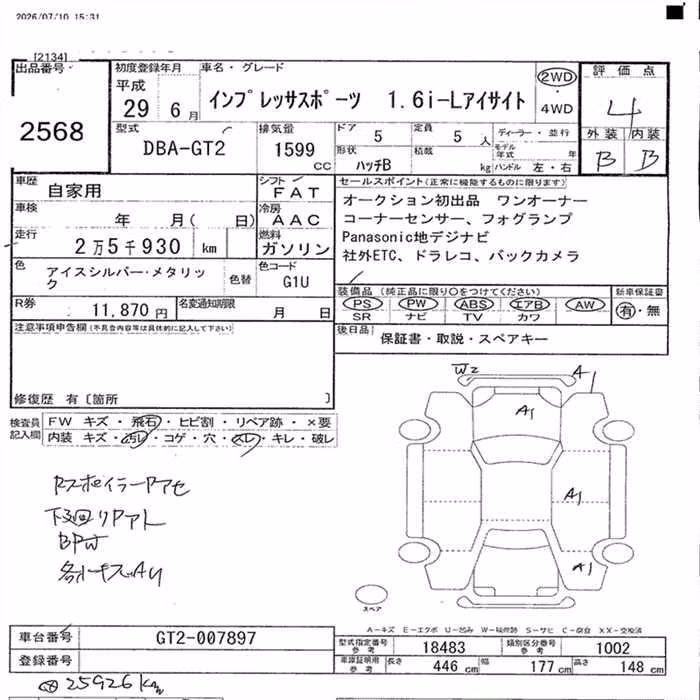 2026/07/10 15:31
[2134]
出品番号
2568
初度登録年月
平成
29 6月
車名・グレード
インプレッサスポーツ 1.6i-Lアイサイト
2WD
4WD
評価点
4
外装 内装
B B
型式
DBA-GT2
排気量
1599
CC
ドア 5
定員 5 人
ディーラー・並行
形状
ハッチB
積載
kg
モデル年式 年
ハンドル 左・右
車歴
自家用
シフト
FAT
車検
年 月( 日)
冷房
AAC
走行
2万5千930 km
燃料
ガソリン
色
アイスシルバー・メタリック
色替
色コード
G1U
R券
11,870円
名変通知期限
月 日
セールスポイント(正常に機能するものに限ります)
オークション初出品 ワンオーナー
コーナーセンサー、フォグランプ
Panasonic地デジナビ
社外ETC、ドラレコ、バックカメラ
装備品(純正品に限り○をつけてください)
PS PW ABS エアB AW
SR ナビ TV カワ
新車保証書
有・無
後日品
保証書・取説・スペアキー
注意事項申告欄(不具合内容等は具体的に記入して下さい)
修復歴 有〔箇所 〕
検査員記入欄
FW キズ・飛石・ヒビ割・リペア跡・×要
内装 キズ・汚レ・コゲ・穴・スレ・キレ・破レ
RスポイラーRアセ
下廻り
BPW
各所キズAU
W2
A1
A1
A1
A1
スペア
A-キズ E-エクボ U-凹み W-補修跡 S-サビ C-腐食 XX-交換済
車台番号
GT2-007897
登録番号
型式指定番号参考 18483
類別区分番号参考 1002
車庫証明用参考 長さ 446 cm 幅 177 cm 高さ 148 cm
25926 km